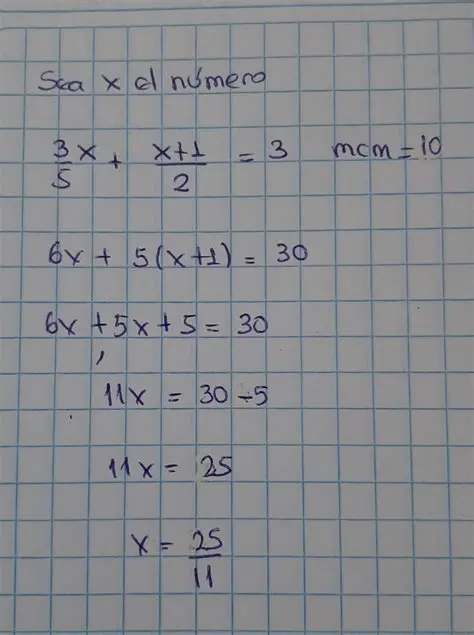 Sea x el número
3/5 x + (x+1)/2 = 3 mcm = 10
6x + 5(x+1) = 30
6x + 5x + 5 = 30
11x = 30 - 5
11x = 25
x = 25/11